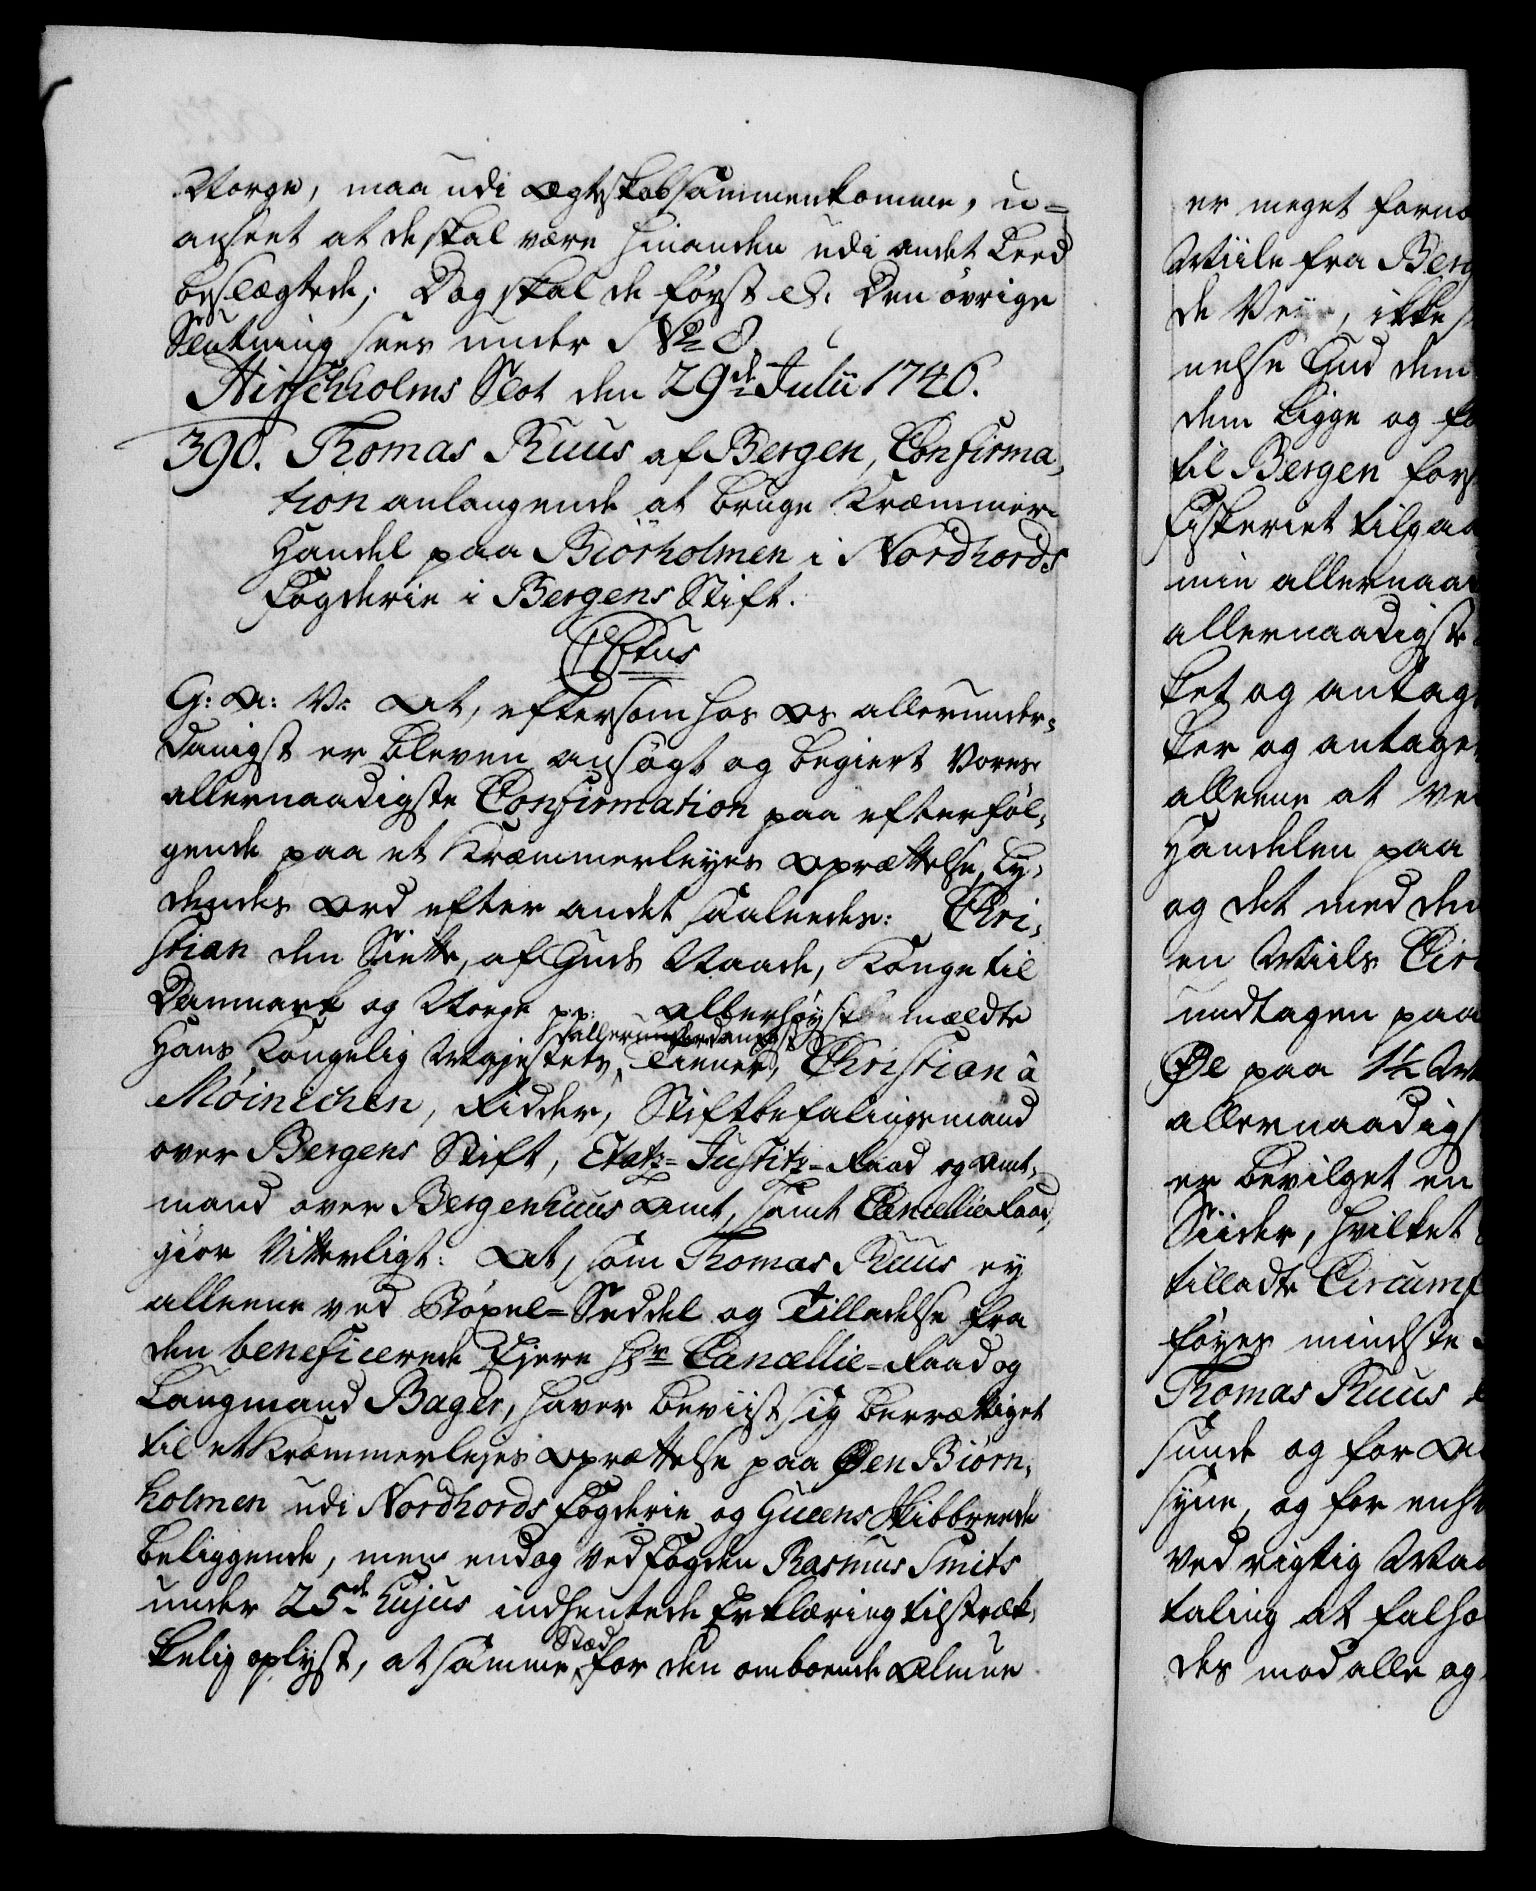 Norge, maa udi Ægteskab sammenkomme, u=
anseet at de skal være hinanden udi andet Leed
beslægtede; Dog skal de først &c. Den övrige
Slutning sees under No 8.
Hirschholms Slot den 29de Julii 1746.
390. Thomas Ruus af Bergen, Confirma,
tion anlangende at bruge Kræmmer-
Handel paa Biörholmen i Nordhords
Fogderie i Bergens Stift.
C6tus
G: A: V: At, eftersom hos Os allerunder-
danigst er bleven ansögt og begiert Vores
allernaadigste Confirmation paa efterföl,
gende paa et Kræmmerleyes Oprættelse, ly,
dendes Ord efter andet saaleedes: Chri,
stian den Siette, af Guds Naade, Konge til
Danmark og Norge p: p: Allerhöystbemældte
Hans Kongelig Majestets allerunderdanigst Tiener, Christian à
Möinichen, Ridder, Stiftbefalingsmand
over Bergens Stift, Etatz- Justitz-Raad og Amt-
mand over Bergenhuus Amt, samt Cancellie Raad,
giör Vitterligt: At, som Thomas Ruus ey
alleene ved Böxel=Seddel og Tilladelse fra
den beneficerede Ejere Hr Cancellie-Raad og
Laugmand Bager, haver beviist sig berrættiget
til et Kræmmerleyes Oprættelse paa Øen Biörn,
holmen udi Nordhords Fogderie og Gulens Skibbreede
beliggende, men endog ved Fogden Rasmus Smits
under 25de hujus indhentede Erklæring tilstræk,
kelig oplyst, at samme Stæd for den omboende Almue
er meget fornø
Miile fra Berg
de Veye, ikke
nelse Gud dem
dem ligge og
til Bergen for
Fiskeriet tilgaa
min allernaa
allernaadigste
ket og antag
ker og antage
alleene at ve
Handelen paa
og det med den
en Miils Cir
undtagen paa
Øl paa 1/4 Mi
allernaadigs
er bevilget en
Siider, hvilket
tilladte Circumf
föyes mindste
Thomas Ruus
sunde og for
syne, og for
ved rigtig Maa
taling at falho
des mod alle og